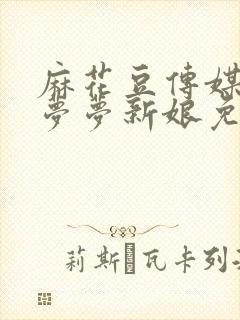 麻花豆傳媒
夢夢新娘免
莉斯·瓦卡列